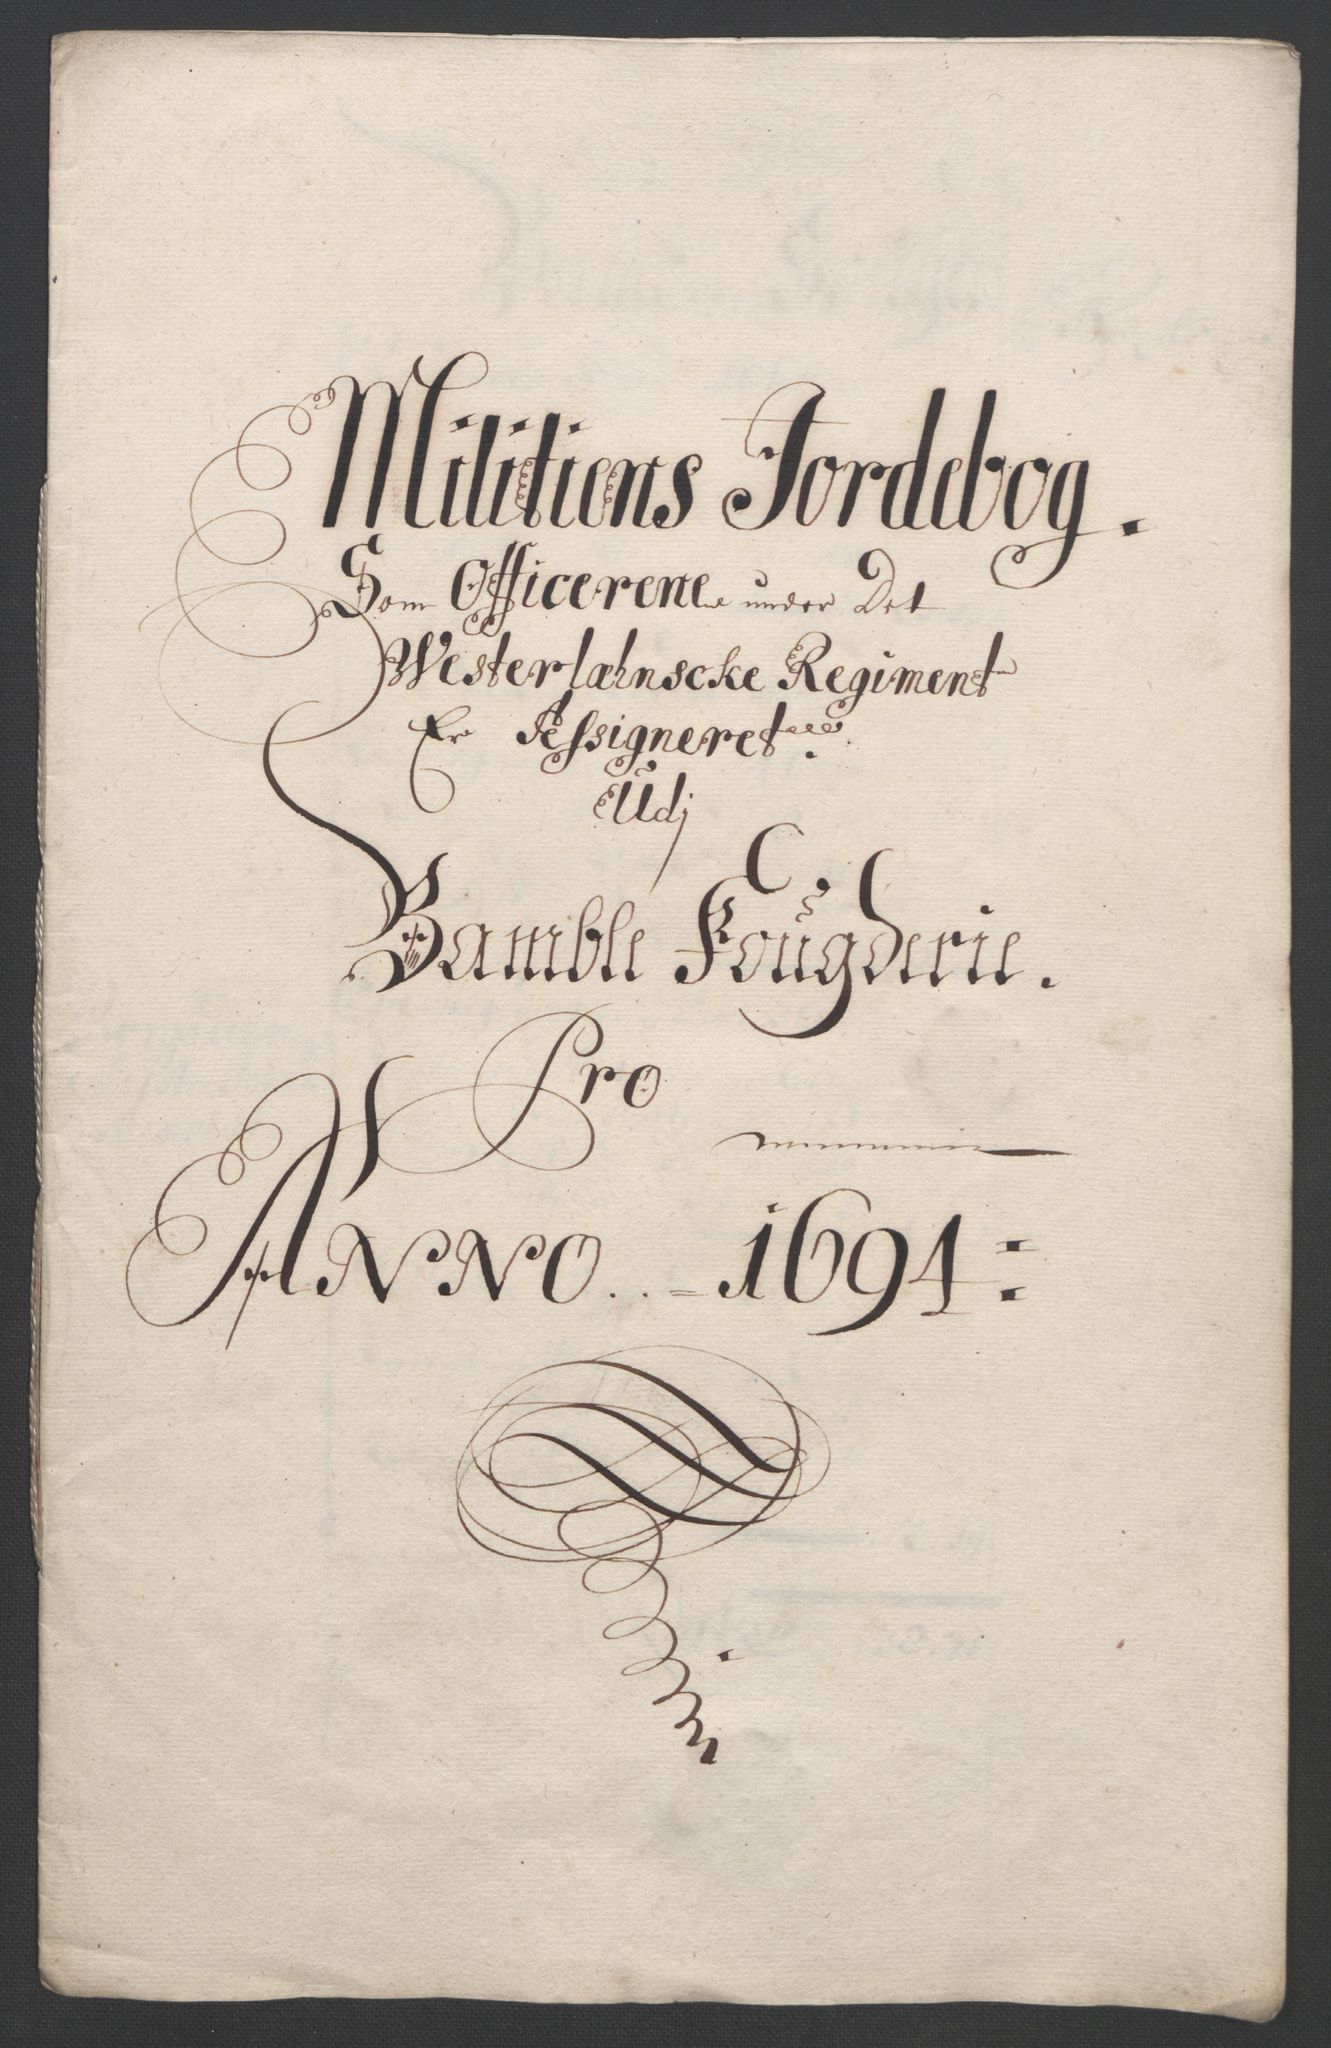 Militiens Jordebog.
Som Officerene under Det
Westerlæhnscke Regiment
Er Assigneret
Udj
Bamble Fougderie.
Pro
ANNO. 1694: